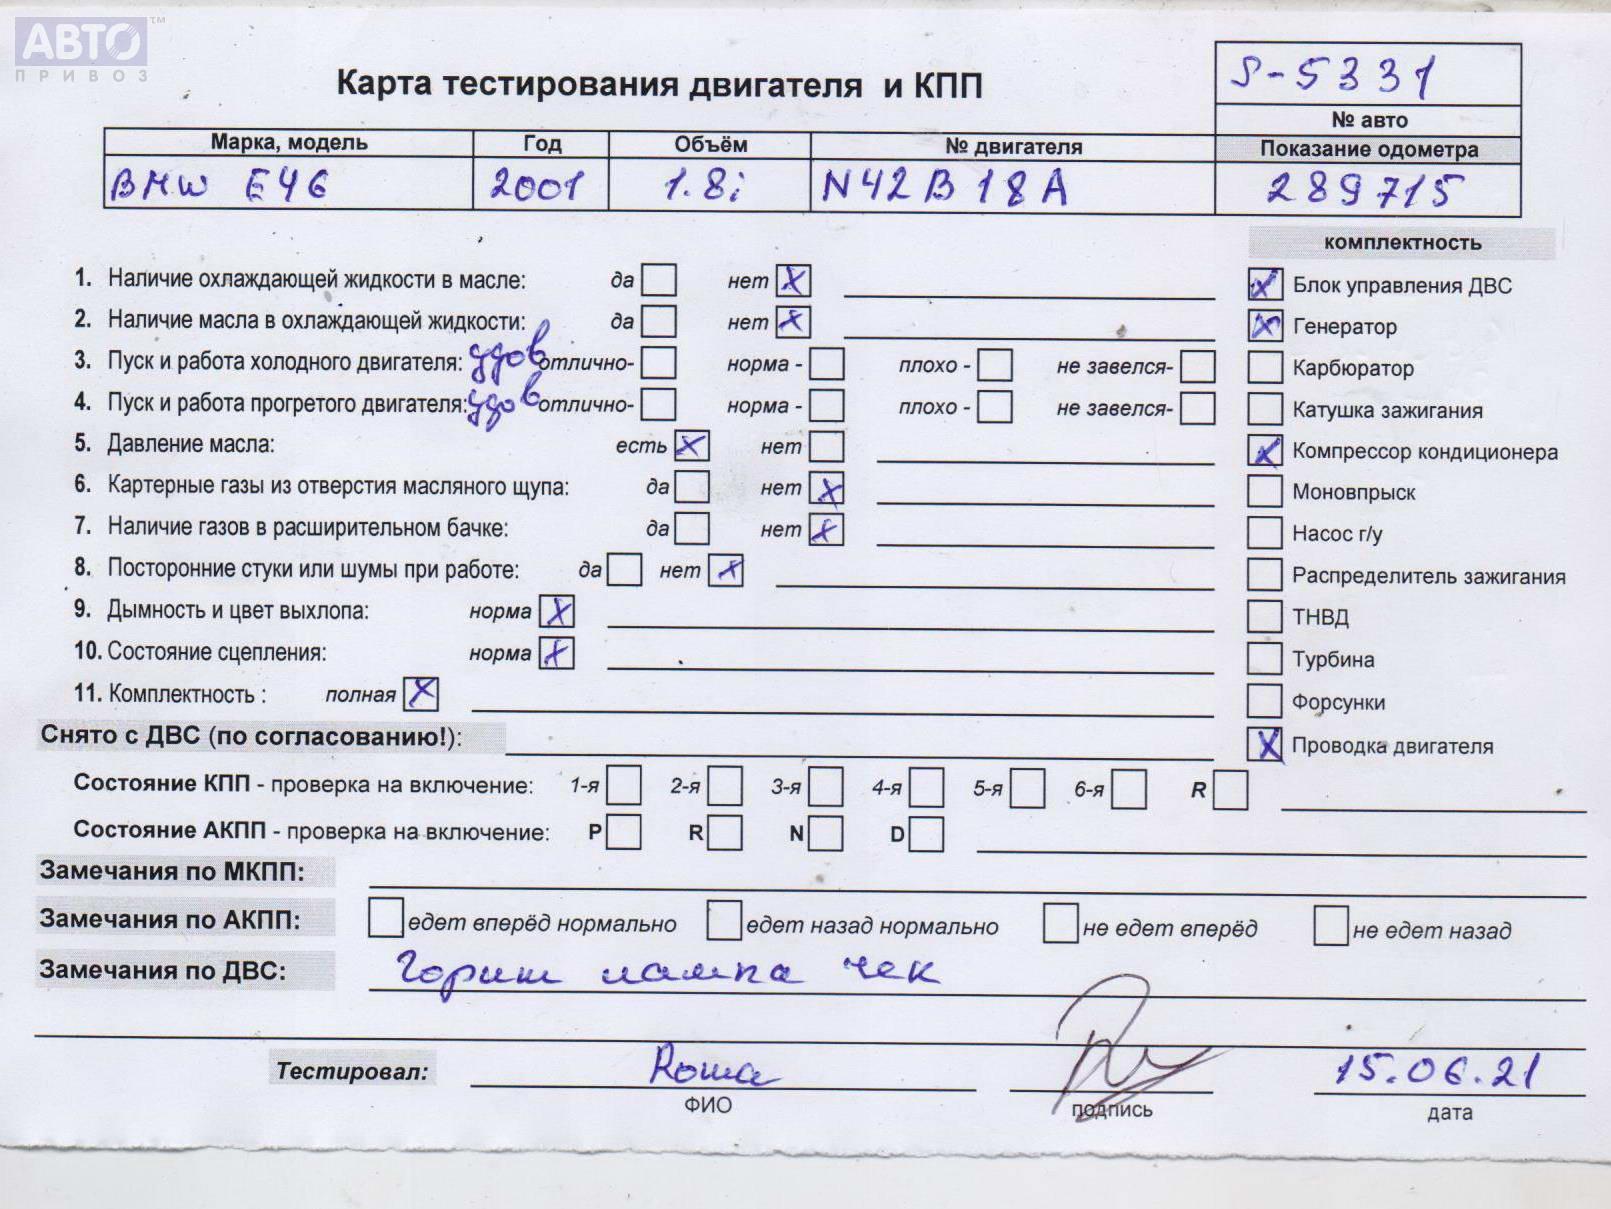 АВТО™
ПРИВОЗ
S-5331
Карта тестирования двигателя и КПП
№ авто
Марка, модель Год Объём № двигателя Показание одометра
BMW E46 2001 1.8i N42B18A 289715
комплектность
1. Наличие охлаждающей жидкости в масле: да нет X Блок управления ДВС X
2. Наличие масла в охлаждающей жидкости: да нет X Генератор X
3. Пуск и работа холодного двигателя: удов отлично- норма - плохо - не завелся- Карбюратор
4. Пуск и работа прогретого двигателя: удов отлично- норма - плохо - не завелся- Катушка зажигания
5. Давление масла: есть X нет X Компрессор кондиционера
6. Картерные газы из отверстия масляного щупа: да нет X Моновпрыск
7. Наличие газов в расширительном бачке: да нет X Насос г/у
8. Посторонние стуки или шумы при работе: да нет X Распределитель зажигания
9. Дымность и цвет выхлопа: норма X ТНВД
10. Состояние сцепления: норма X Турбина
11. Комплектность : полная X Форсунки
Снято с ДВС (по согласованию!): X Проводка двигателя
Состояние КПП - проверка на включение: 1-я 2-я 3-я 4-я 5-я 6-я R
Состояние АКПП - проверка на включение: P R N D
Замечания по МКПП:
Замечания по АКПП: едет вперёд нормально едет назад нормально не едет вперёд не едет назад
Замечания по ДВС: Горит лампа чек
Тестировал: Рома 15.06.21
ФИО подпись дата